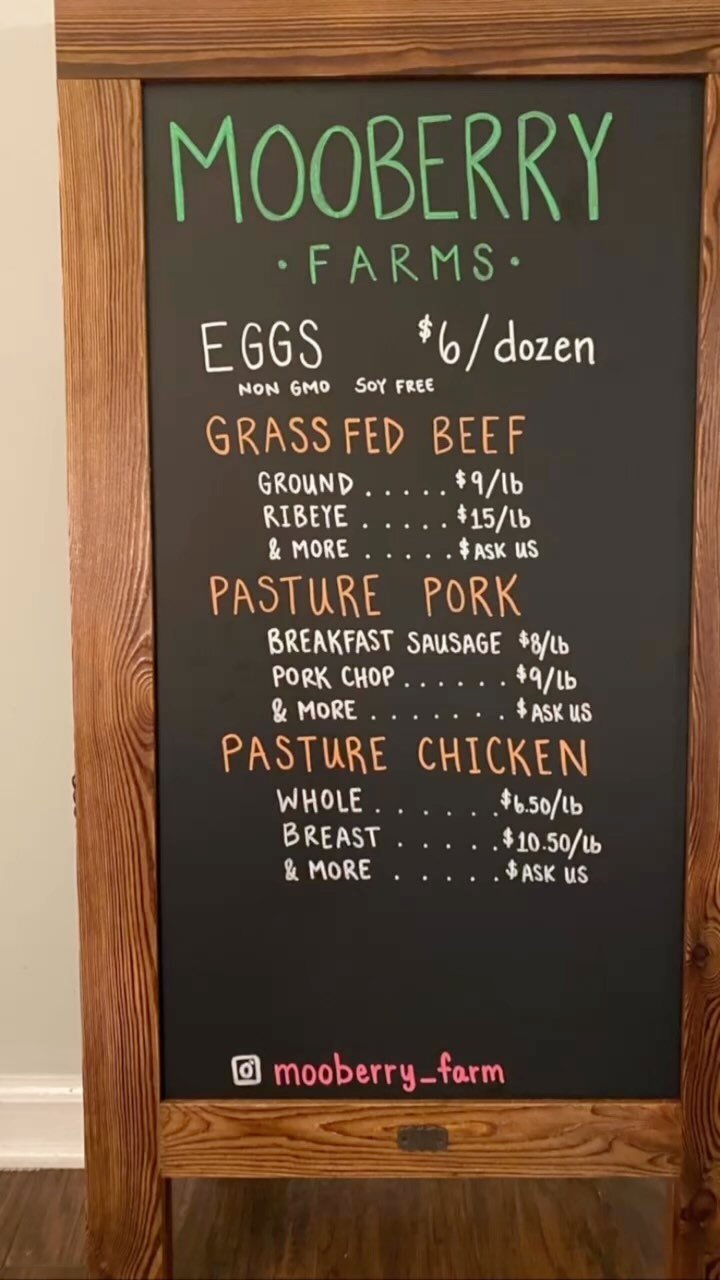 MOOBERRY
• FARMS •
EGGS $6/dozen
NON GMO SOY FREE
GRASS FED BEEF
GROUND ..... $9/lb
RIBEYE ..... $15/lb
& MORE ..... $ ASK US
PASTURE PORK
BREAKFAST SAUSAGE $8/lb
PORK CHOP ...... $9/lb
& MORE ....... $ ASK US
PASTURE CHICKEN
WHOLE ...... $6.50/lb
BREAST ..... $10.50/lb
& MORE ..... $ ASK US
mooberry_farm